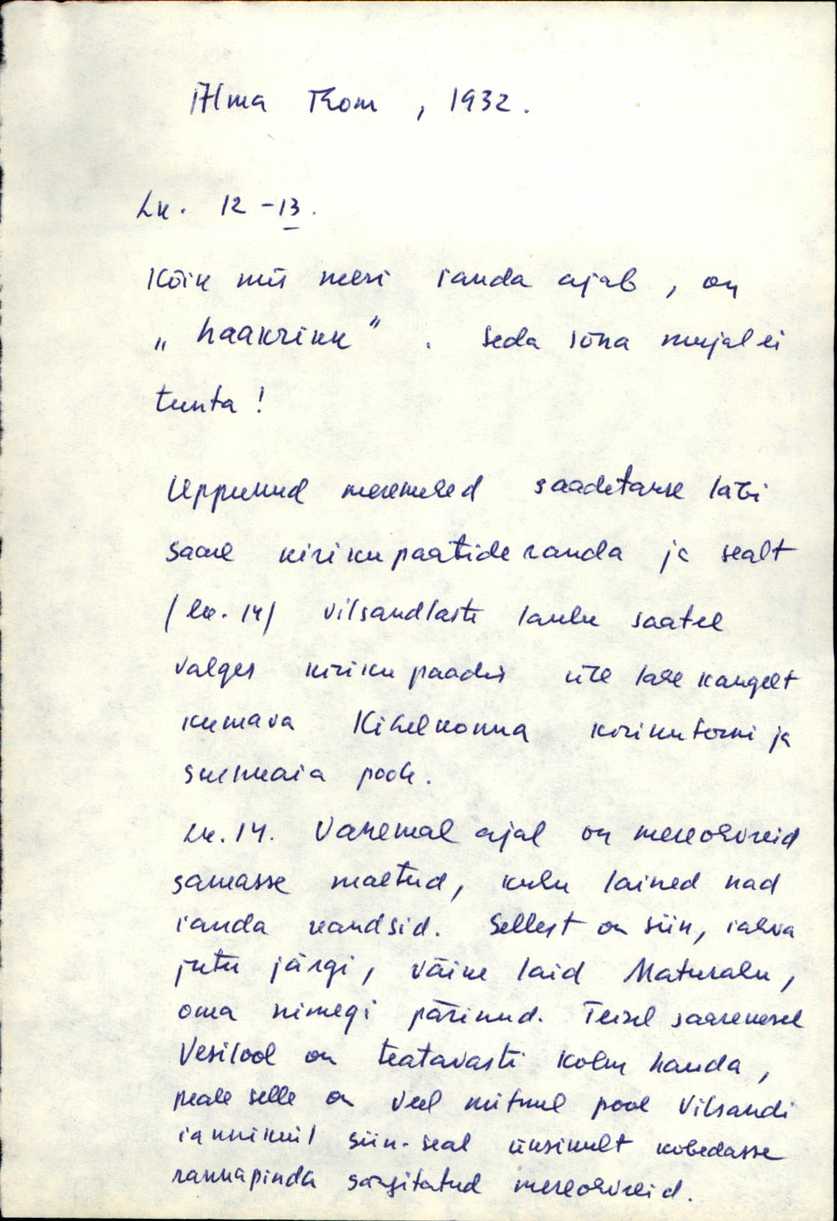 Alma Thom, 1932.
Lk. 12-13.
Kõik mis meri randa ajab, on
„haakrikk". Seda sõna mujal ei
tunta!
Uppunud meremehed saadetakse läbi
saare kirikupaatide randa ja sealt
/lk. 14/ vilsandlaste laulu saatel
valges kirikupaadis üle lahe kaugelt
kumava Kihelkonna kirikutorni ja
surnuaia poole.
Lk. 14. Vanemal ajal on mereohvreid
samasse maetud, kuhu lained nad
randa kandsid. Sellest on siin, rahva
jutu järgi, väike laid Maturahu,
oma nimegi pärinud. Teisel saarekesel
Vesilool on teatavasti kolm hauda,
peale selle on veel mitmel pool Vilsandi
rannikuil siin-seal üksikult kobedasse
rannapinda sängitatud mereohvreid.